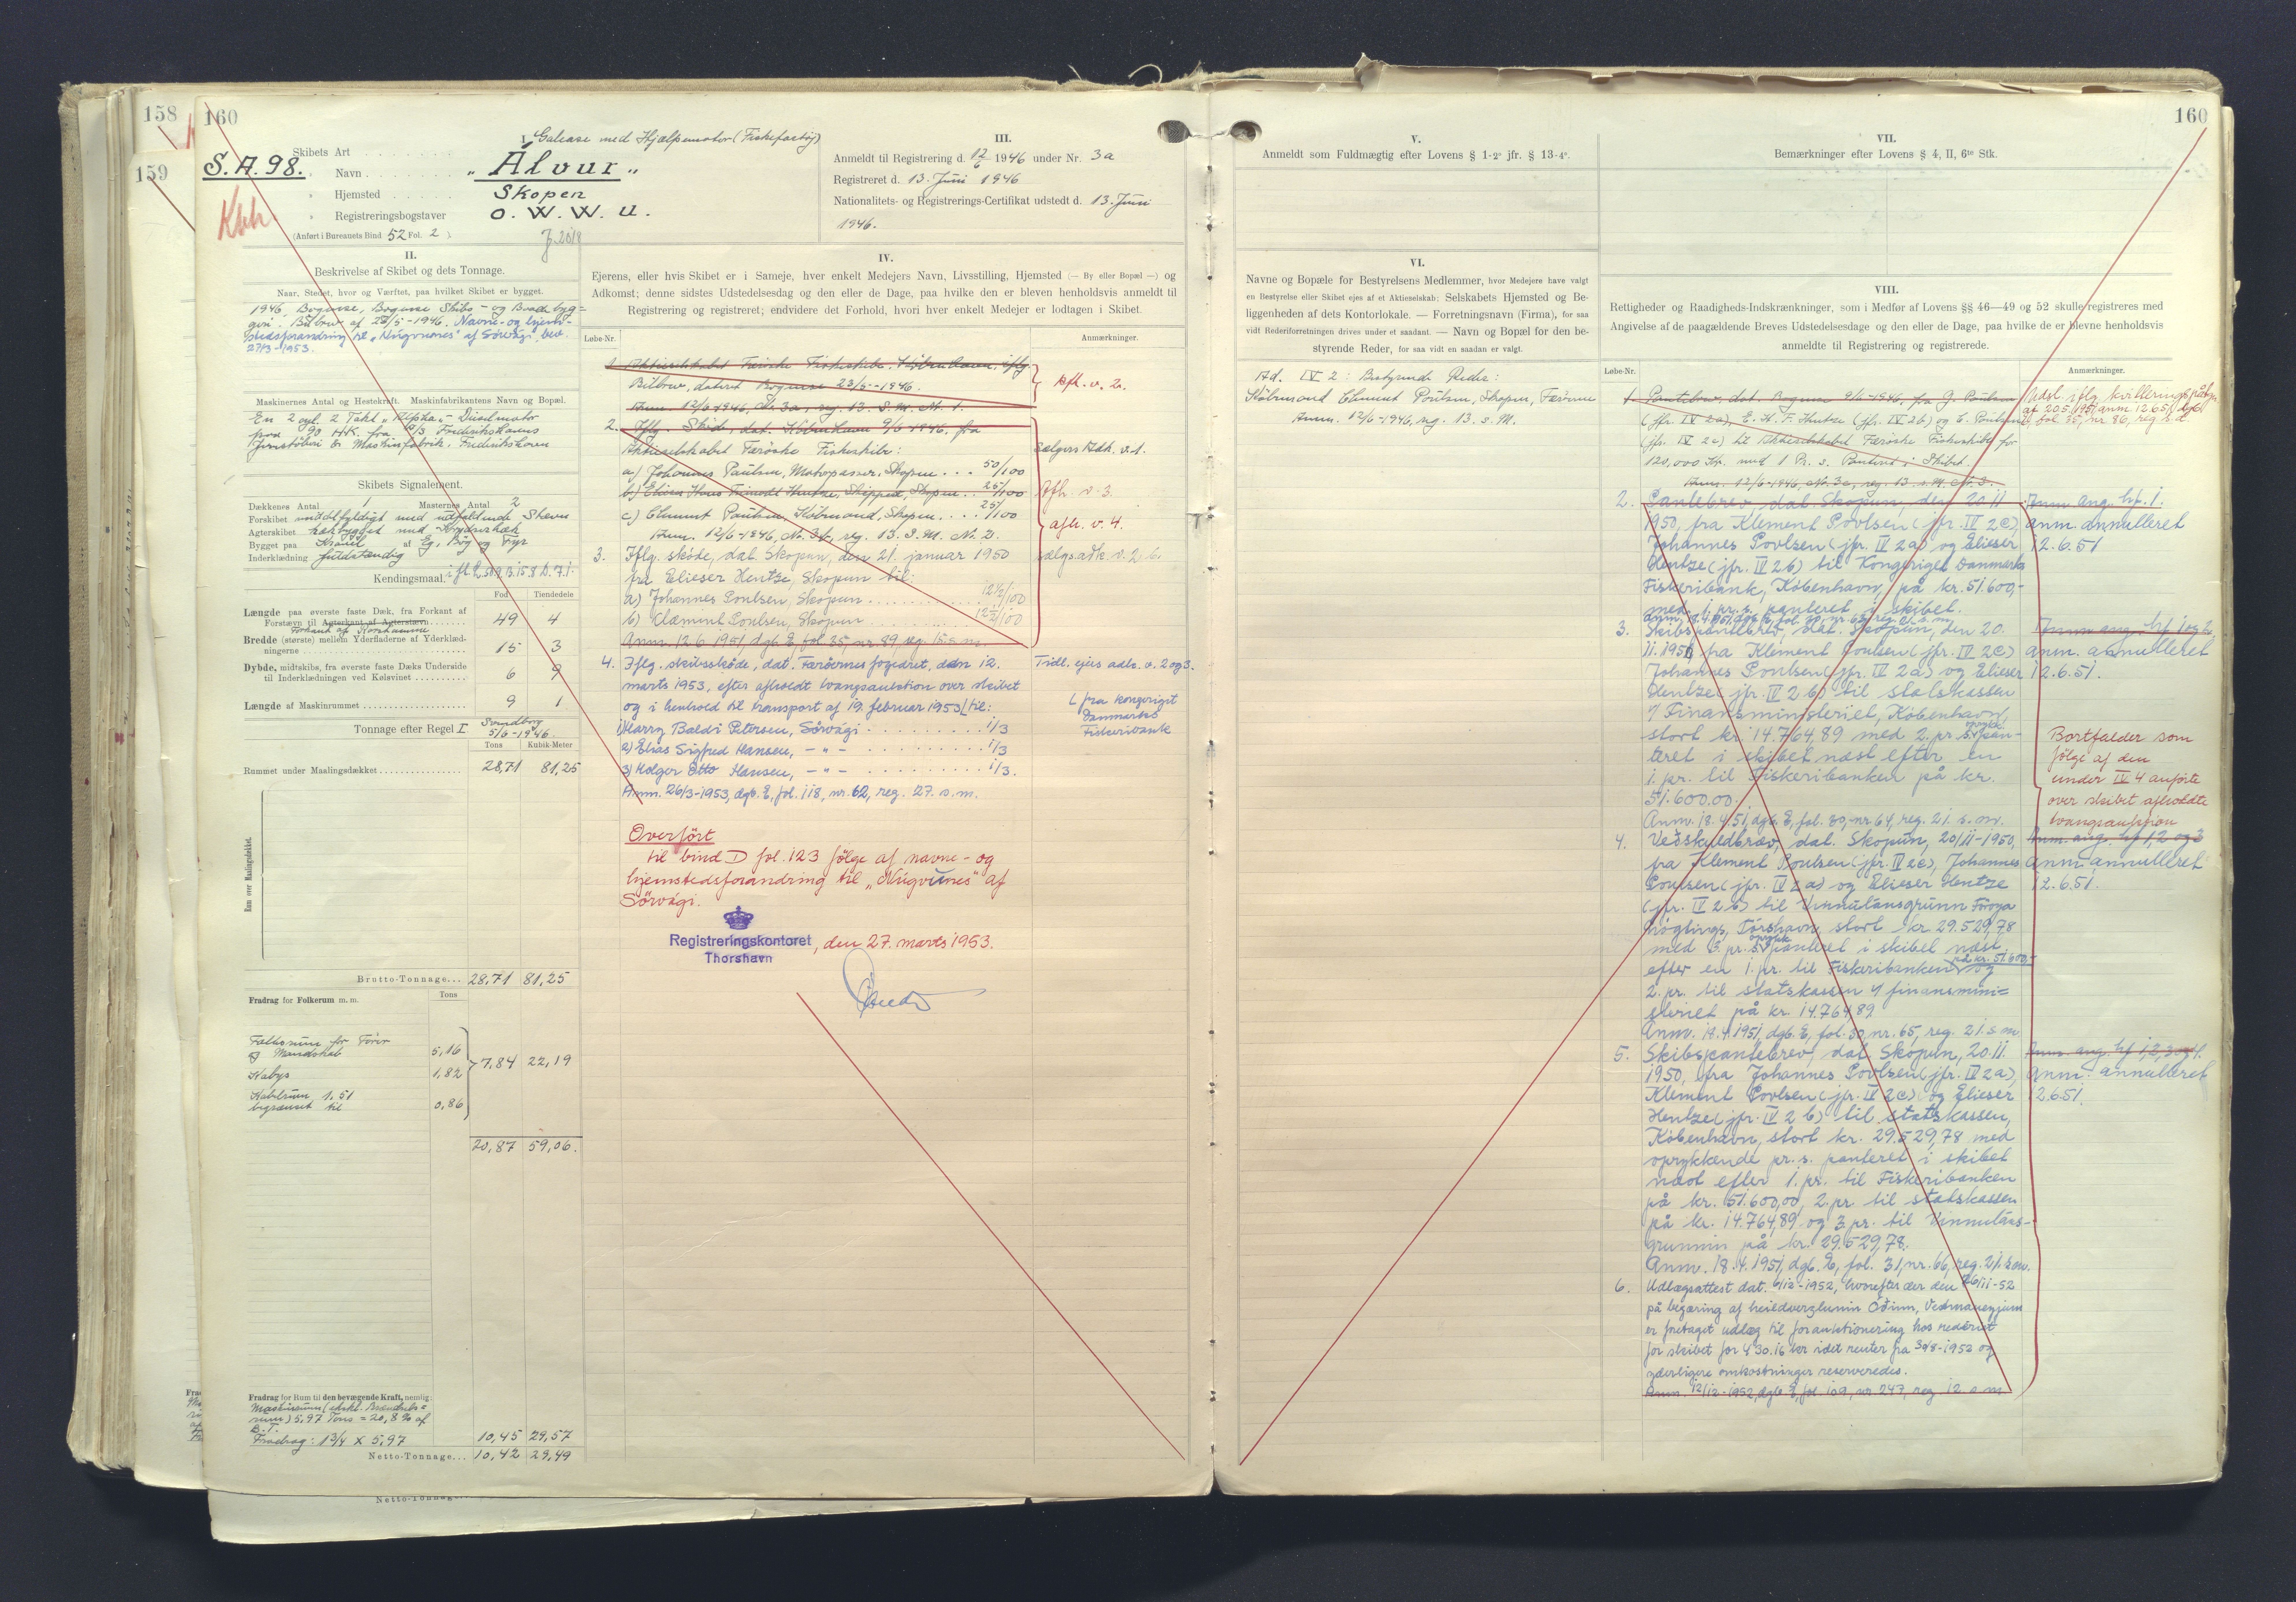 158
159
160
S.A. 98.
Kbh
I.
Galease med Hjælpemotor (Fiskefartøj)
Skibets Art
" Navn
"Álvur"
" Hjemsted
Skopen
" Registreringsbogstaver
O. W. W. U.
(Anført i Bureauets Bind 52 Fol. 2 )
II.
Beskrivelse af Skibet og dets Tonnage.
Naar, Stedet, hvor og Værftet, paa hvilket Skibet er bygget.
1946, Bogense, Bogense Skibs- og Baadebyg=
geri. Bilbrev af 23/5-1946. Navne- og hjem-
stedsforandring til "Núgvunes" af Sørvági, bev.
27/3-1953.
Maskinernes Antal og Hestekraft. Maskinfabrikantens Navn og Bopæl.
En 2 cyl. 2 Takt "Alpha"- Dieselmotor
paa 90 H.K. fra A/S Frederikshavns
Jernstøberi & Maskinfabrik. Frederikshavn
Skibets Signalement.
Dækkenes Antal 1 Masternes Antal 2
Forskibet middelfyldigt med udfaldende Stævn
Agterskibet hækbygget med Krydserhæk
Bygget paa Kravel af Eg, Bøg og Fyr
Inderklædning fuldstændig
Kendingsmaal
Fod Tiendedele
Længde paa øverste faste Dæk, fra Forkant af
Forstævn til Agterkant af Agterstævn 49 4
Forkant af Rorstamme
Bredde (største) mellem Yderfladerne af Yderklæd-
ningerne 15 3
Dybde, midtskibs, fra øverste faste Dæks Underside
til Inderklædningen ved Kølsvinet 6 9
Længde af Maskinrummet 9 1
Tonnage efter Regel I Svendborg
5/6-1946.
Tons Kubik-Meter
Rummet under Maalingsdækket 28,71 81,25
Rum over Maalingsdækket.
Brutto-Tonnage... 28,71 81,25
Fradrag for Folkerum m. m. Tons
Fællesrum for Fører
og Mandskab 5,16
7,84 22,19
Kabys 1,82
Kabelrum 1.51
begrænset til 0,86
20,87 59,06.
Fradrag for Rum til den bevægende Kraft, nemlig:
Maskinrum (ekskl. Brændsels=
rum) 5,97 Tons = 20,8 % af
B.T.
Fradrag: 1 3/4 x 5,97 10,45 29,57
Netto-Tonnage... 10,42 29,49
III.
Anmeldt til Registrering d. 12/6 1946 under Nr. 3a
Registreret d. 13. Juni 1946
Nationalitets- og Registrerings-Certifikat udstedt d. 13. Juni
1946.
IV.
Ejerens, eller hvis Skibet er i Sameje, hver enkelt Medejers Navn, Livsstilling, Hjemsted (— By eller Bopæl —) og
Adkomst; denne sidstes Udstedelsesdag og den eller de Dage, paa hvilke den er bleven henholdsvis anmeldt til
Registrering og registreret; endvidere det Forhold, hvori hver enkelt Medejer er lodtagen i Skibet.
Løbe-Nr. Anmærkninger.
1 Aktieselskabet Færøske Fiskeskibe. København. iflg.
Bilbrev, dateret Bogense 23/5-1946. Afh. v. 2.
Anm. 12/6-1946, Nr. 3a, reg. 13. s.M. Nr. 1.
2. Iflg. Skøde, dat. København 9/6-1946. fra
Aktieselskabet Færøske Fiskeskibe: Sælgers Adk. v. 1.
a) Johannes Paulsen, Motorpasser, Skopen 50/100
b) Elieser Hans Frimodt Hentze, Skipper, Skopen 25/100 Afh. v. 3.
c) Clement Paulsen, Købmand, Skopen 25/100 afh. v. 4.
Anm. 12/6-1946, Nr. 3b, reg. 13. s.M. Nr. 2.
3. Iflg. skøde, dat. Skopun, den 21. januar 1950 sælgs.adk. v. 2 b.
fra Elieser Hentze, Skopun til:
a) Johannes Poulsen, Skopun 12½/100
b) Klæment Poulsen, Skopun 12½/100
Anm. 12 6 1951, dgb. E, fol. 35, nr. 89, reg. 15. s.m.
4. Iflg. skibsskøde, dat. Færøernes fogedret, den 12. Tidl. ejers adk. v. 2 og 3.
marts 1953, efter afholdt tvangsauktion over skibet
og i henhold til transport af 19. februar 1953 til: fra kongeriget
Danmarks
Fiskeribank
1) Harry Baldi Petersen, Sörvági 1/3
2) Elias Sigfred Hansen, - " - 1/3
3) Holger Otto Hansen, - " - 1/3.
Anm. 26/3-1953, dgb. E, fol. 118, nr. 62, reg. 27. s.m.
Overført
til bind D fol. 123 følge af navne- og
hjemstedsforandring til "Núgvunes" af
Sörvági.
Registreringskontoret, den 27. marts 1953.
Thorshavn
V.
Anmeldt som Fuldmægtig efter Lovens § 1-2° jfr. § 13-4°.
VI.
Navne og Bopæle for Bestyrelsens Medlemmer, hvor Medejere have valgt
en Bestyrelse eller Skibet ejes af et Aktieselskab; Selskabets Hjemsted og Be-
liggenheden af dets Kontorlokale. — Forretningsnavn (Firma), for saa
vidt Rederiforretningen drives under et saadant. — Navn og Bopæl for den be-
styrende Reder, for saa vidt en saadan er valgt.
Ad. IV 2: Bestyrende Reder:
Købmand Clement Poulsen, Skopen, Færøerne
Anm. 12/6-1946, reg. 13. s. M.
160
VII.
Bemærkninger efter Lovens § 4, II, 6te Stk.
VIII.
Rettigheder og Raadigheds-Indskrænkninger, som i Medfør af Lovens §§ 46—49 og 52 skulle registreres med
Angivelse af de paagældende Breves Udstedelsesdage og den eller de Dage, paa hvilke de er blevne henholdsvis
anmeldte til Registrering og registrerede.
Løbe-Nr. Anmærkninger.
1 Pantebrev, dat. Bogense 9/6-1946, fra J. Paulsen
(jfr. IV 2a), E. H. F. Hentze (jfr. IV 2b) og C. Poulsen
(jfr. IV 2c) til Aktieselskabet Færøske Fiskeskibe for
120,000 Kr. med 1 Pr. s. Panteret i Skibet.
Anm. 12/6-1946, Nr. 3c, reg. 13. s.M. Nr. 3.
Udsl. iflg. kvittering
af 20.5.1951, anm. 12.6.51, dgb.
E, fol. 35, nr. 86, reg. s.d.
2. Pantebrev, dat. Skopun, den 20 11 Anm. ang. hf. 1.
1950, fra Klement Povlsen (jfr. IV 2c), anm. annulleret
Johannes Povlsen (jfr. IV 2a) og Elieser 12.6.51
Hentze (jfr. IV 2b) til Kongeriget Danmarks
Fiskeribank, København, på kr. 51.600,-
med 1. pr. s. panteret i skibet.
3. Skibspantebrev, dat. Skopun, den 20. Anm. ang. hf. 1 og 2
11. 1950, fra Klement Poulsen (jfr. IV 2c) anm. annulleret
Johannes Poulsen (jfr. IV 2a) og Elieser 12.6.51.
Hentze (jfr. IV 2b) til statskassen
v/ Finansministeriet, København,
stort kr. 14.764,89 med 2. pr. s. pan-
teret i skibet næst efter en
1. pr. til Fiskeribanken på kr.
51.600.00.
Anm. 18.4.51, dgb. E, fol. 30, nr. 64, reg. 21. s.m.
Bortfalder som
følge af den
under IV 4 anførte
over skibet afholdte
tvangsauktion
4. Veðskuldbræv, dat. Skopun, 20/11-1950, Anm. ang. hf. 1, 2 og 3
fra Klement Poulsen (jfr. IV 2c), Johannes anm. annulleret
Poulsen (jfr. IV 2a) og Elieser Hentze 12.6.51.
(jfr. IV 2 b) til Vinnulánsgrunn Føroya
Løgtings, Tórshavn, stort kr. 29.529,78
med 3. pr. s. panteret i skibet næst
efter en 1. pr. til Fiskeribanken på kr. 51.600,- og
2. pr. til statskassen v/ finansmini=
steriet på kr. 14.764,89
Anm. 18.4.1951, dgb. E, fol. 30, nr. 65, reg. 21. s m
5. Skibspantebrev, dat. Skopun, 20. 11. Anm. ang. hf. 1, 2, 3 og 4.
1950, fra Johannes Povlsen (jfr. IV 2a), anm. annulleret
Klement Povlsen (jfr. IV 2c) og Elieser 12.6.51.
Hentze (jfr. IV 2 b) til statskassen,
København, stort kr. 29.529,78 med
oprykkende pr. s. panteret i skibet
næst efter 1. pr. til Fiskeribanken
på kr. 51.600,00, 2. pr. til statskassen
på kr. 14.764,89 og 3. pr. til Vinnuláns-
grunnin på kr. 29.529,78.
Anm. 18.4.1951, dgb. E, fol. 31, nr. 66, reg. 21. s.m.
6. Udlægsattest dat. 6/12-1952, hvorefter der den 26/11-52
på begæring af heildverzlunin Óðinn, Vestmannaeyjum
er foretaget udlæg til forauktionering hos rederiet
for skibet for 430.16 kr idet renter fra 30/8-1952 og
yderligere omkostninger reserveredes.
Anm. 12/12-1952, dgb. E, fol. 109, nr. 247, reg. 12. s.m